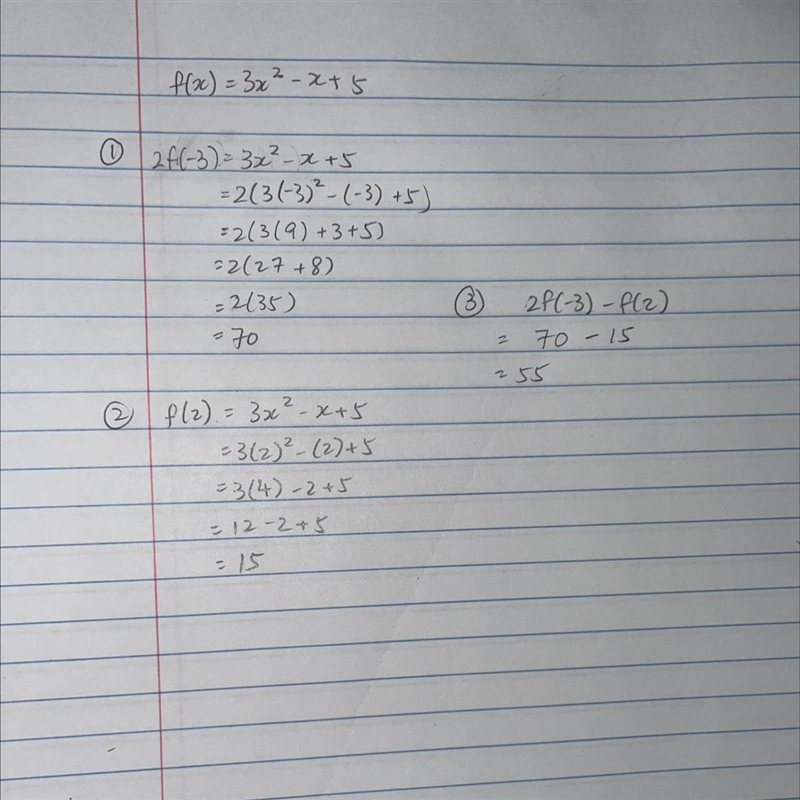 f(x) = 3x² - x + 5
① 2f(-3) = 3x² - x + 5
= 2(3(-3)² - (-3) + 5)
= 2(3(9) + 3 + 5)
= 2(27 + 8)
= 2(35)
= 70
② f(2) = 3x² - x + 5
= 3(2)² - (2) + 5
= 3(4) - 2 + 5
= 12 - 2 + 5
= 15
③ 2f(-3) - f(2)
= 70 - 15
= 55